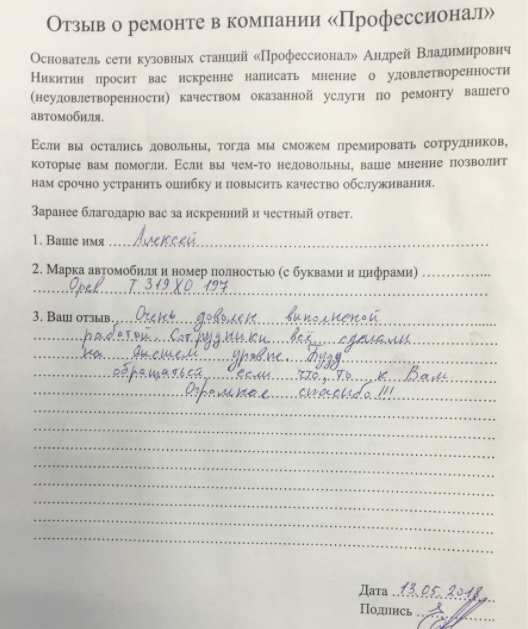 Отзыв о ремонте в компании «Профессионал»
Основатель сети кузовных станций «Профессионал» Андрей Владимирович
Никитин просит вас искренне написать мнение о удовлетворенности
(неудовлетворенности) качеством оказанной услуги по ремонту вашего
автомобиля.
Если вы остались довольны, тогда мы сможем премировать сотрудников,
которые вам помогли. Если вы чем-то недовольны, ваше мнение позволит
нам срочно устранить ошибку и повысить качество обслуживания.
Заранее благодарю вас за искренний и честный ответ.
1. Ваше имя Алексей
2. Марка автомобиля и номер полностью (с буквами и цифрами)
Т 319 ХО 197
3. Ваш отзыв Очень доволен выполненой
работой. Сотрудники всё сделали
на высшем уровне. Буду
обращаться если что, то к Вам
Огромное спасибо!!!
Дата 13.05.2018
Подпись